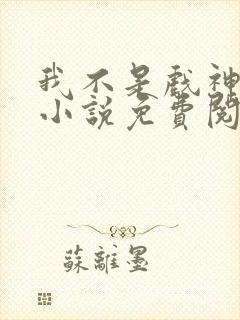 我不是戲神
小說免費閱
蘇離墨